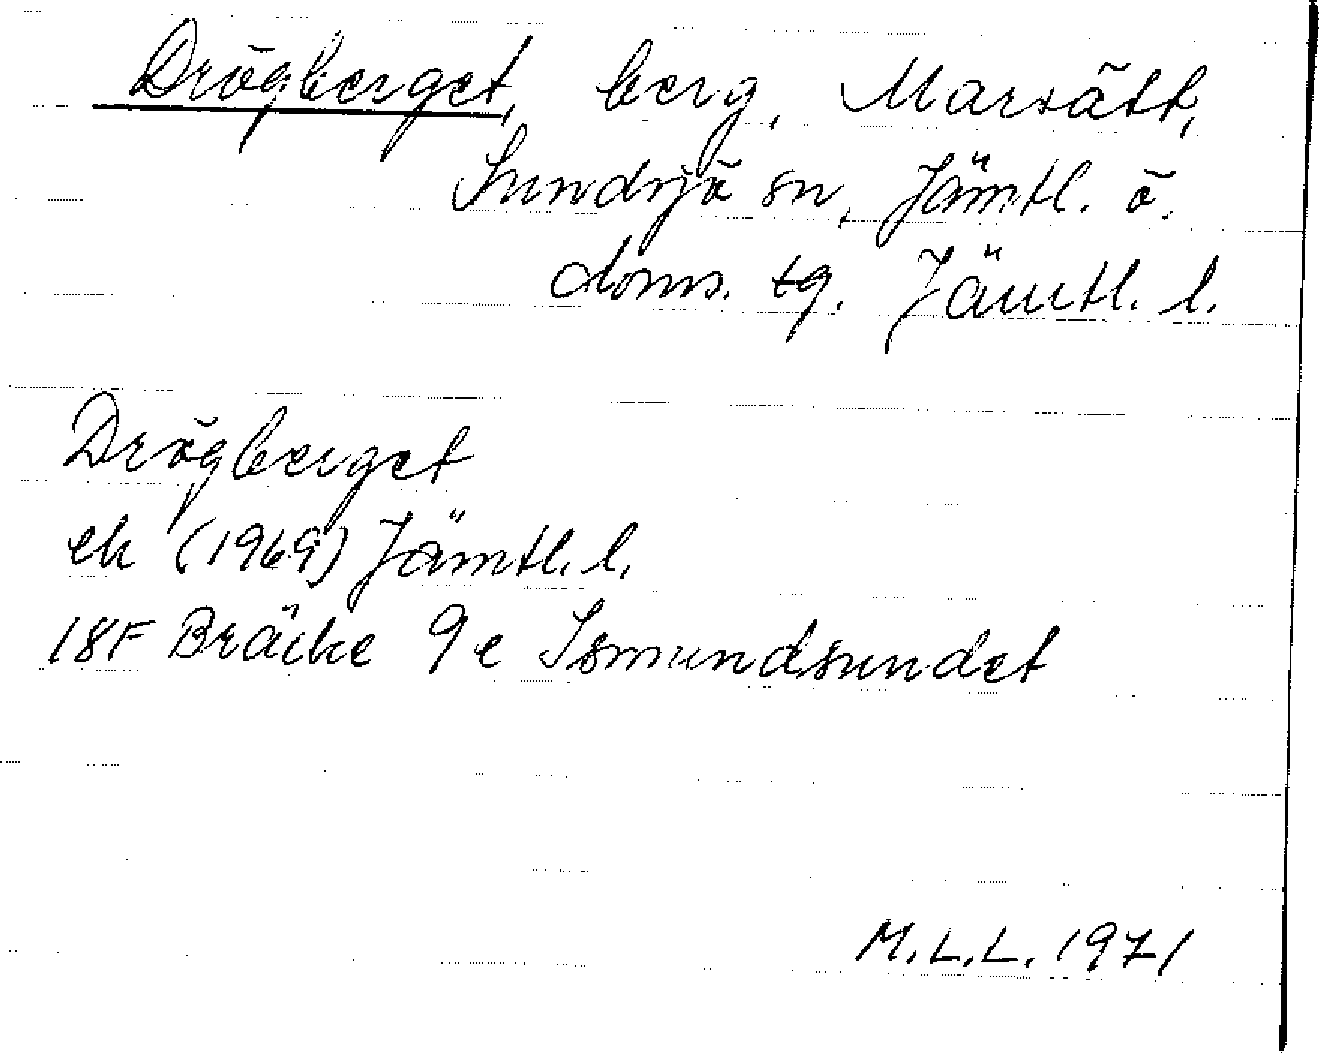 Drögberget, berg, Marsätt,
Sundsjö sn, Jämtl. ö.
doms. tg. Jämtl. l.
Drögberget
ek (1969) Jämtl. l.
18F Bräcke 9e Ismundsundet
M.L.L. 1971